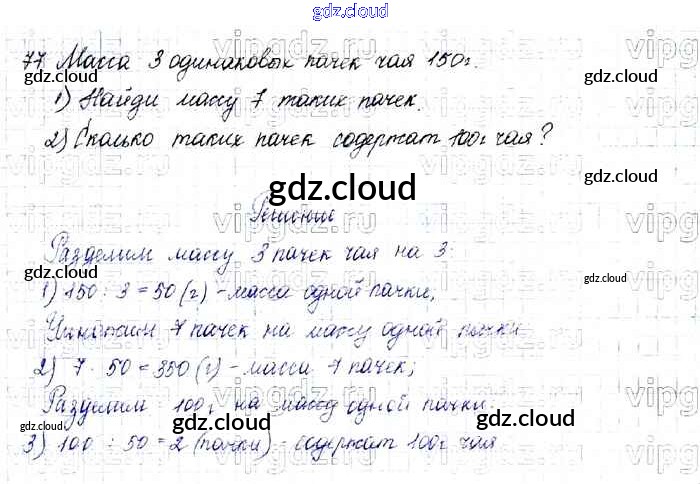 gdz.cloud
77. Масса 3 одинаковых пачек чая 150г.
1) Найди массу 7 таких пачек.
2) Сколько таких пачек содержат 100г чая?
gdz.cloud
Решение
Разделим массу 3 пачек чая на 3:
1) 150 : 3 = 50 (г) - масса одной пачки,
Умножаем 7 пачек на массу одной пачки
2) 7 · 50 = 350 (г) - масса 7 пачек;
Разделим 100г на массу одной пачки:
3) 100 : 50 = 2 (пачки) - содержат 100г чая